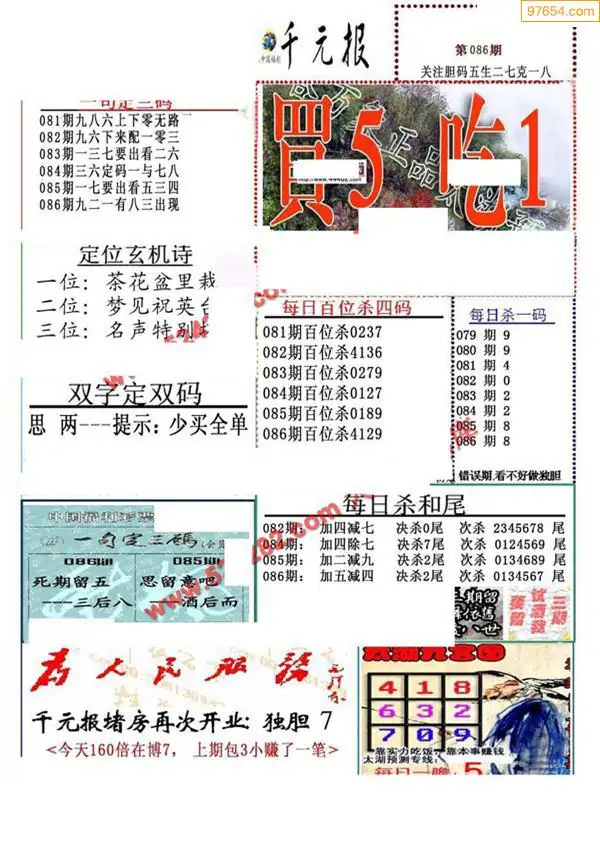 97654.com
千元报
第086期
关注胆码五生二七克一八
一句定三码
081期九八六上下零无路
082期九六下来配一零三
083期一三七要出看二六
084期三六定码一与七八
085期一七要出看五三四
086期九二一有八三出现
買5吃1
定位玄机诗
一位：茶花盆里栽
二位：梦见祝英台
三位：名声特别
每日百位杀四码
081期百位杀0237
082期百位杀4136
083期百位杀0279
084期百位杀0127
085期百位杀0189
086期百位杀4129
每日杀一码
079 期 9
080 期 9
081 期 4
082 期 0
083 期 2
084 期 2
085 期 8
086 期 8
错误期,看不好做独胆
双字定双码
思 两---提示:少买全单
每日杀和尾
082期： 加四减七 决杀0尾 次杀 2345678 尾
084期： 加四除七 决杀7尾 次杀 0124569 尾
085期： 加二减九 决杀2尾 次杀 0134689 尾
086期： 加五减四 决杀2尾 次杀 0134567 尾
中国福利彩票
一句定三碼
086期
085期
死期留五
思留意吧
——三后八
——酒后而
为人民服务
千元报堵房再次开业:独胆 7
<今天160倍在博7, 上期包3小赚了一笔>
太湖九宫图
4 1 8
6 3 2
7 0 9
靠实力吃饭, 靠本事赚钱
太湖预测专线:
每日一胆 5